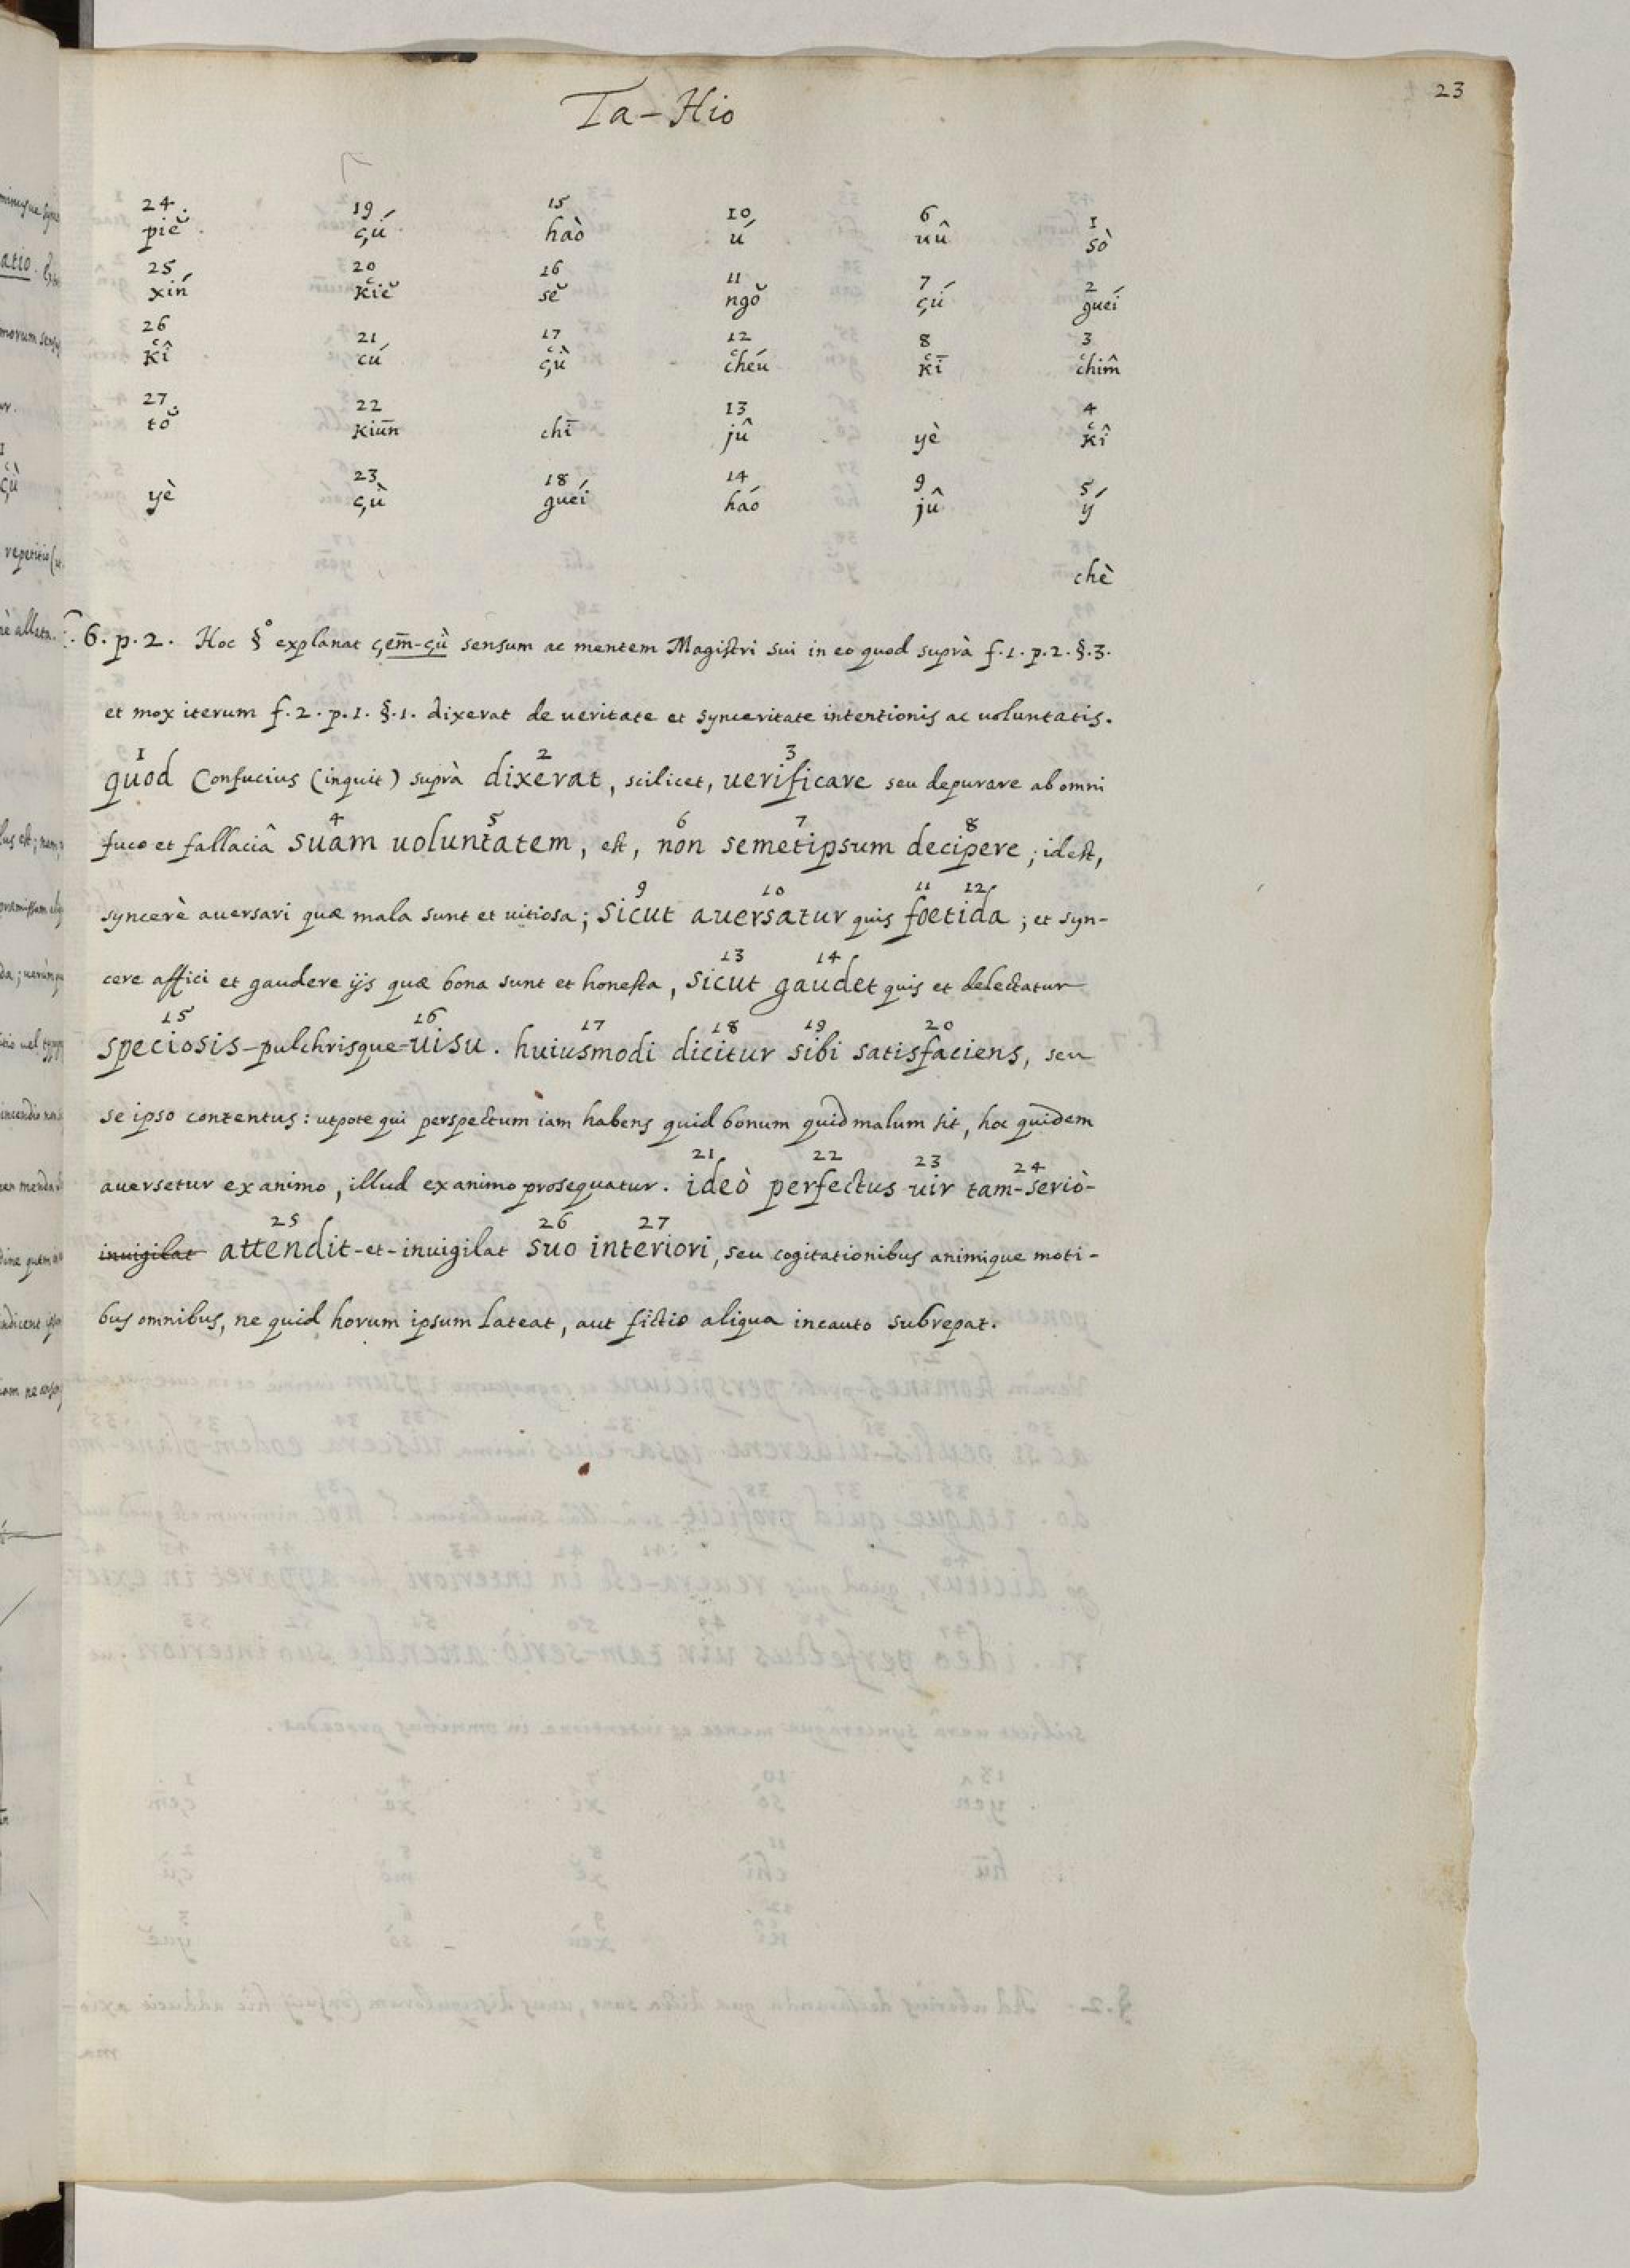 Ta-Hio
23
24. 19 15 10 6 1
piĕ. çú haò ú uû sò
25 20 16 11 7 2
xiń kiĕ sĕ ngŏ çú gueí
26 21 17 12 8 3
kî cú çù cheú kī chim̂
27. 22 13 4
tŏ kiun̄ chī jû yè kî
23 18 14 9 5
yè çù gueí haó jû ý
chè
f. 6. p. 2. Hoc §° explanat çem̄-çù sensum ac mentem Magistri sui in eo quod suprà f. 1. p. 2. §. 3.
et mox iterum f. 2. p. 1. §. 1. dixerat de ueritate et synceritate intentionis ac uoluntatis.
1 2 3
quod Confucius (inquit) suprà dixerat, scilicet, uerificare seu depurare ab omni
4 5 6 7 8
fuco et fallaciâ suam uoluntatem, est, non semetipsum decipere; idest,
9 10 11 12
syncerè auersari quæ mala sunt et uitiosa; sicut auersatur quis foetida; et syn-
13 14
cere affici et gaudere ijs quæ bona sunt et honesta, sicut gaudet quis et delectatur
15 16 17 18 19 20
speciosis-pulchrisque-uisu. huiusmodi dicitur sibi satisfaciens, seu
se ipso contentus: utpote qui perspectum iam habens quid bonum quid malum sit, hoc quidem
21 22 23 24
auersetur ex animo, illud ex animo prosequatur. ideò perfectus uir tam-seriò-
25 26 27
inuigilat attendit-et-inuigilat suo interiori, seu cogitationibus animique moti-
bus omnibus, ne quid horum ipsum lateat, aut fictio aliqua incauto subrepat.